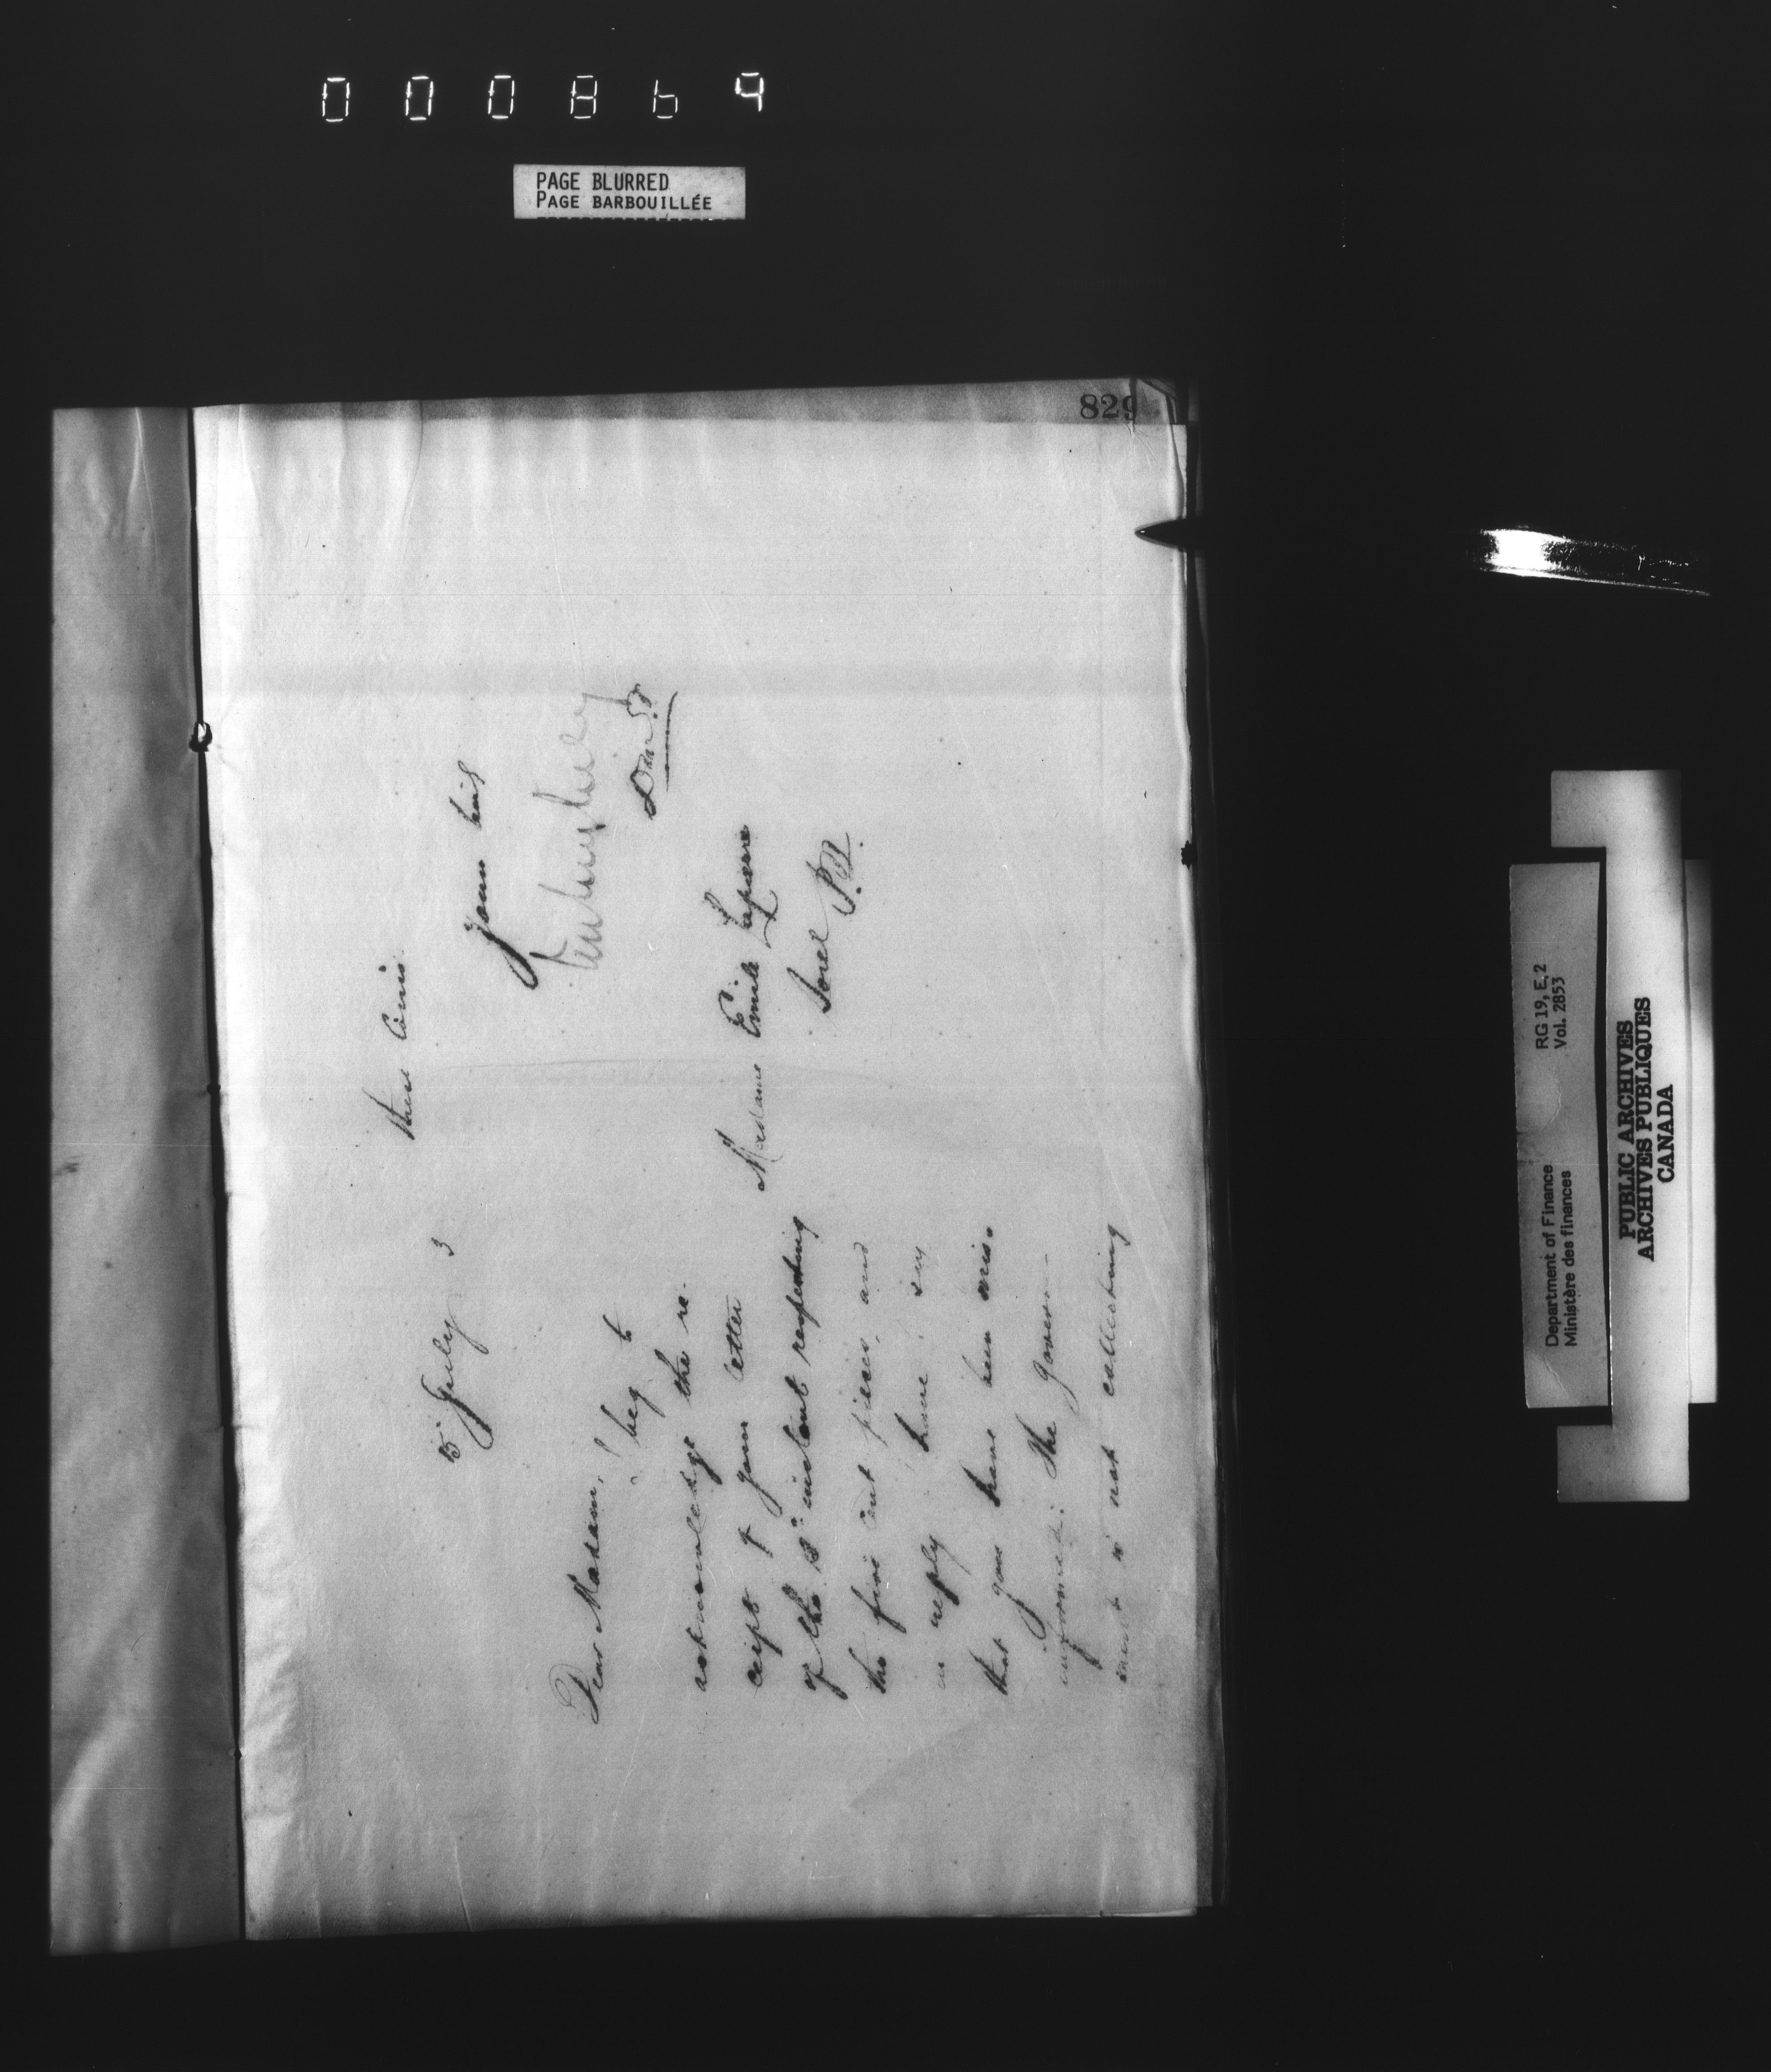 000869
PAGE BLURRED
PAGE BARBOUILLÉE
829
5 July 3
Dear Madam,
I beg to
acknowledge the re-
ceipt of your letter
of the instant respecting
the five cent pieces, and
in reply have say
that you have been mis-
informed. The Govern-
ment is not collecting
these coins.
Yours truly
Madame Emile
Sorel P.Q.
Department of Finance
Ministère des finances
RG 19, E, 2
Vol. 2853
PUBLIC ARCHIVES
ARCHIVES PUBLIQUES
CANADA